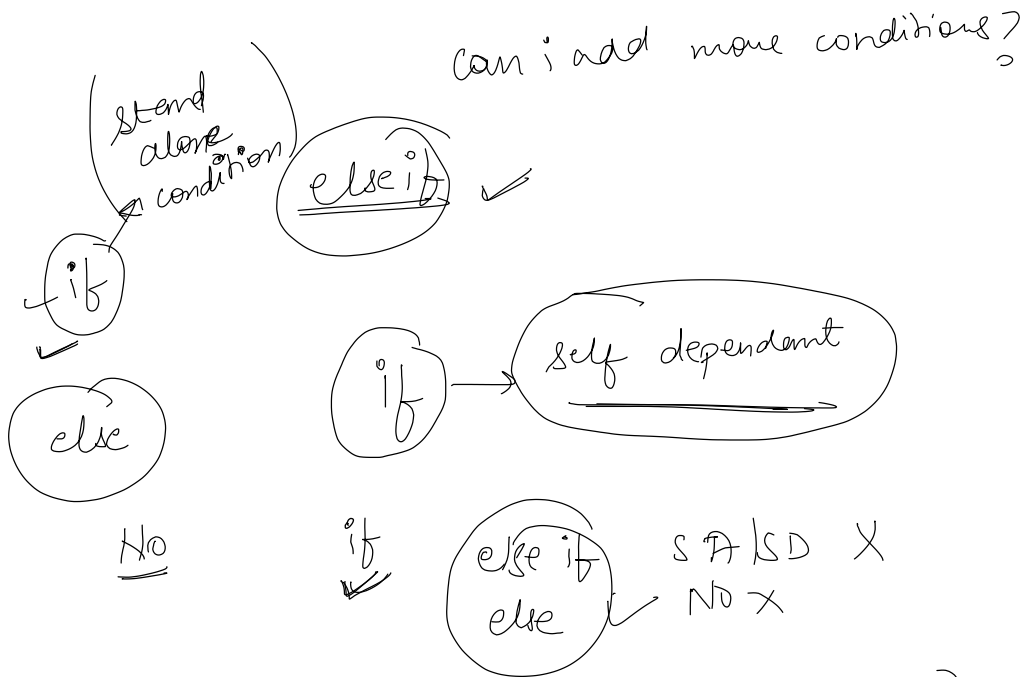 can i add more conditions?
stand
alone
condition
else if
if
self dependant
if
else
No
if
else if
else
SA/SD X
NO X